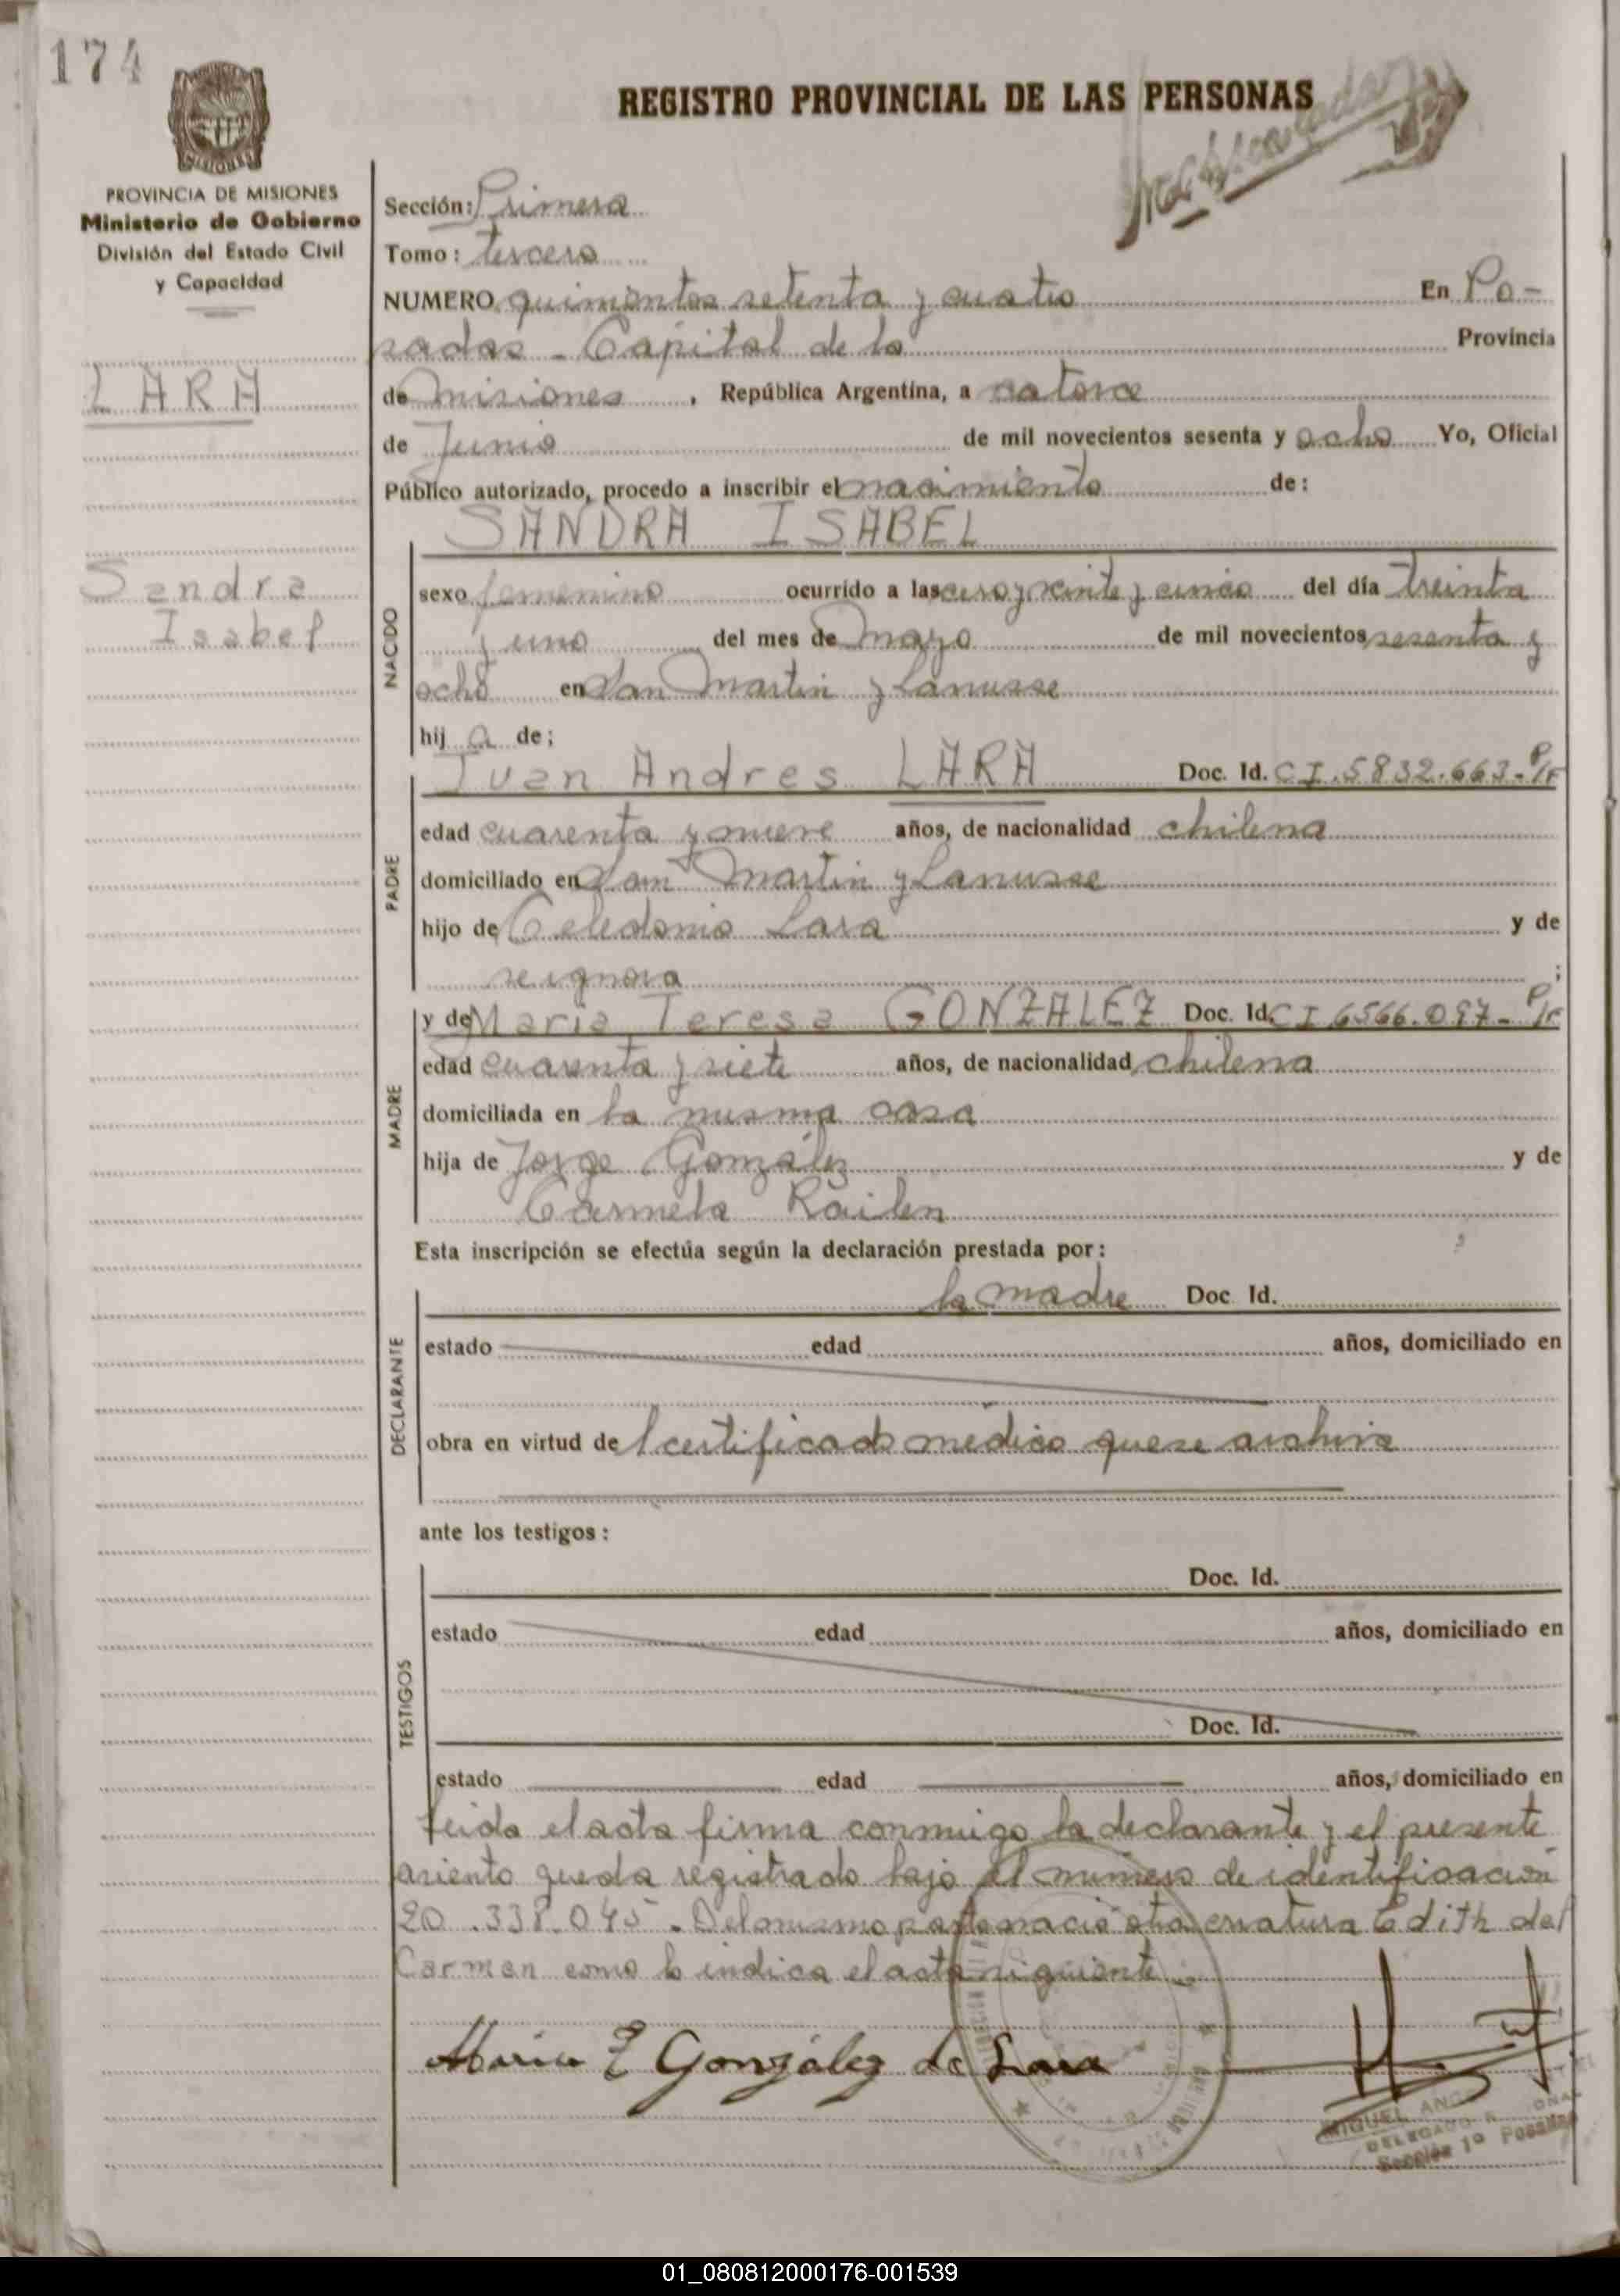 174
REGISTRO PROVINCIAL DE LAS PERSONAS
PROVINCIA DE MISIONES
Ministerio de Gobierno
División del Estado Civil
y Capacidad
LARA
Sandra
Isabel
Sección: Primera
Tomo: tercero
NUMERO quinientos setenta y cuatro En Po-
sadas - Capital de la Provincia
de misiones, República Argentina, a catorce
de Junio de mil novecientos sesenta y ocho Yo, Oficial
Público autorizado, procedo a inscribir el nacimiento de:
SANDRA ISABEL
NACIDO
sexo femenino ocurrido a las cero y veinte y cinco del día treinta
y uno del mes de Mayo de mil novecientos sesenta y
ocho en San Martin y Lanusse
hij a de;
PADRE
Juan Andres LARA Doc. Id. CI. 5832.663-P/F
edad cuarenta y nueve años, de nacionalidad chilena
domiciliado en San Martin y Lanusse
hijo de Celedonio Lara y de
se ignora ;
MADRE
y de Maria Teresa GONZALEZ Doc. Id. CI 6566.097- P/F
edad cuarenta y siete años, de nacionalidad chilena
domiciliada en la misma casa
hija de Jorge González y de
Carmela Railen
Esta inscripción se efectúa según la declaración prestada por:
DECLARANTE
la madre Doc Id.
estado edad años, domiciliado en
obra en virtud del certificado médico que se archiva
ante los testigos:
TESTIGOS
Doc. Id.
estado edad años, domiciliado en
Doc. Id.
estado edad años, domiciliado en
Leida el acta firma conmigo la declarante y el presente
asiento queda registrado bajo el número de identificación
20.338.045. Del mismo parto nació otra criatura Edith del
Carmen como lo indica el acta siguiente.
María T González de Lara
MIGUEL
DELEGADO
Sección 1º Posadas
01_080812000176-001539